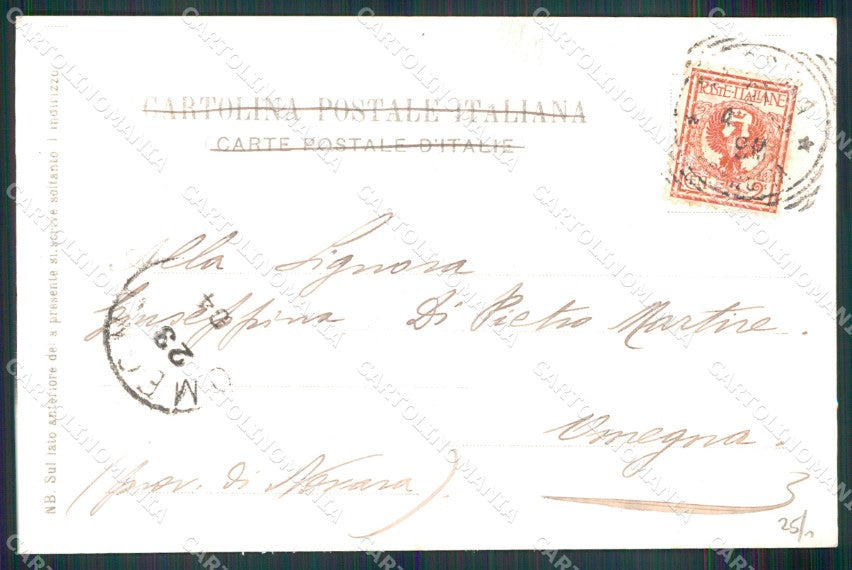 CARTOLINA POSTALE ITALIANA
CARTE POSTALE D'ITALIE
POSTE-ITALIANE
Alla Signora
Giuseppina Di Pietro Martire.
Omegna.
(prov. di Novara)
NB. Sul lato anteriore della presente si scrive soltanto l'indirizzo
OMEGNA
23
04
25/
CARTOLINOMANIA